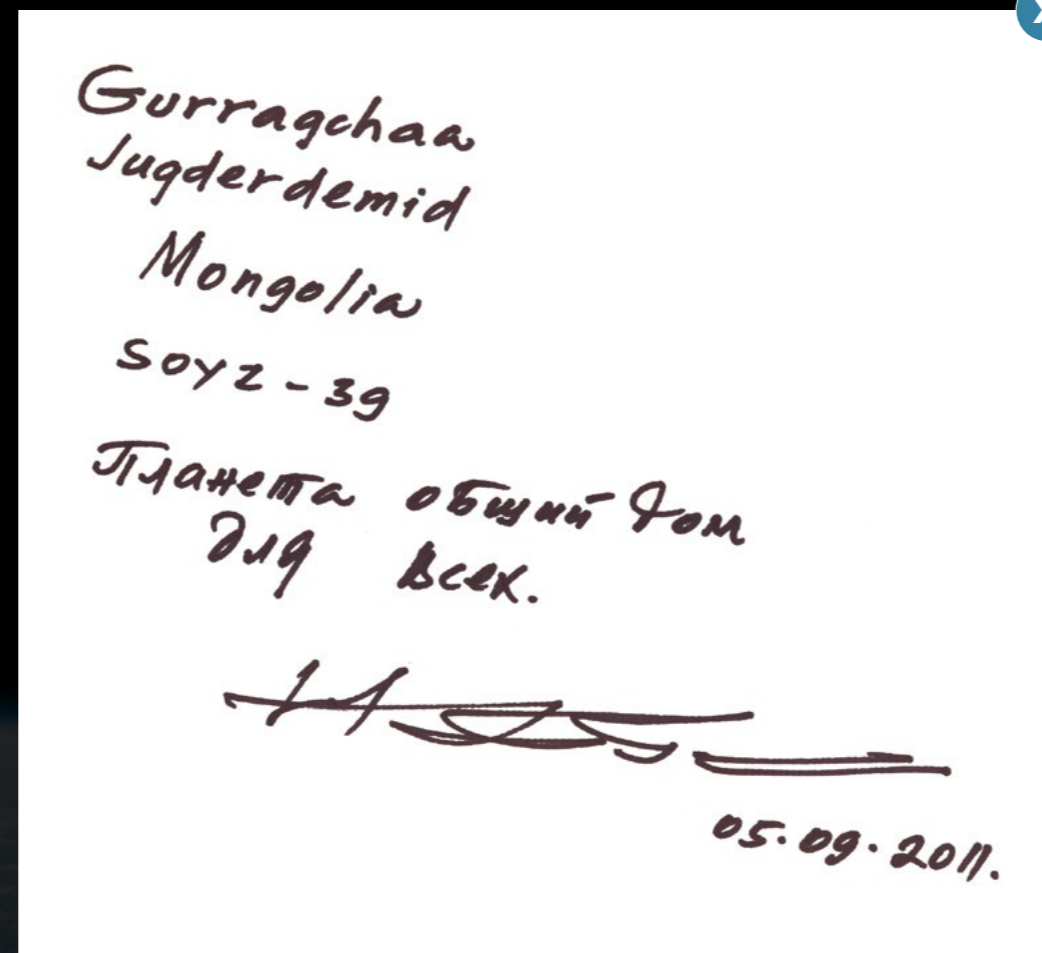 Gurragchaa
Jugderdemid
Mongolia
SOYZ - 39
Планета общий Дом
для Всех.
05.09.2011.